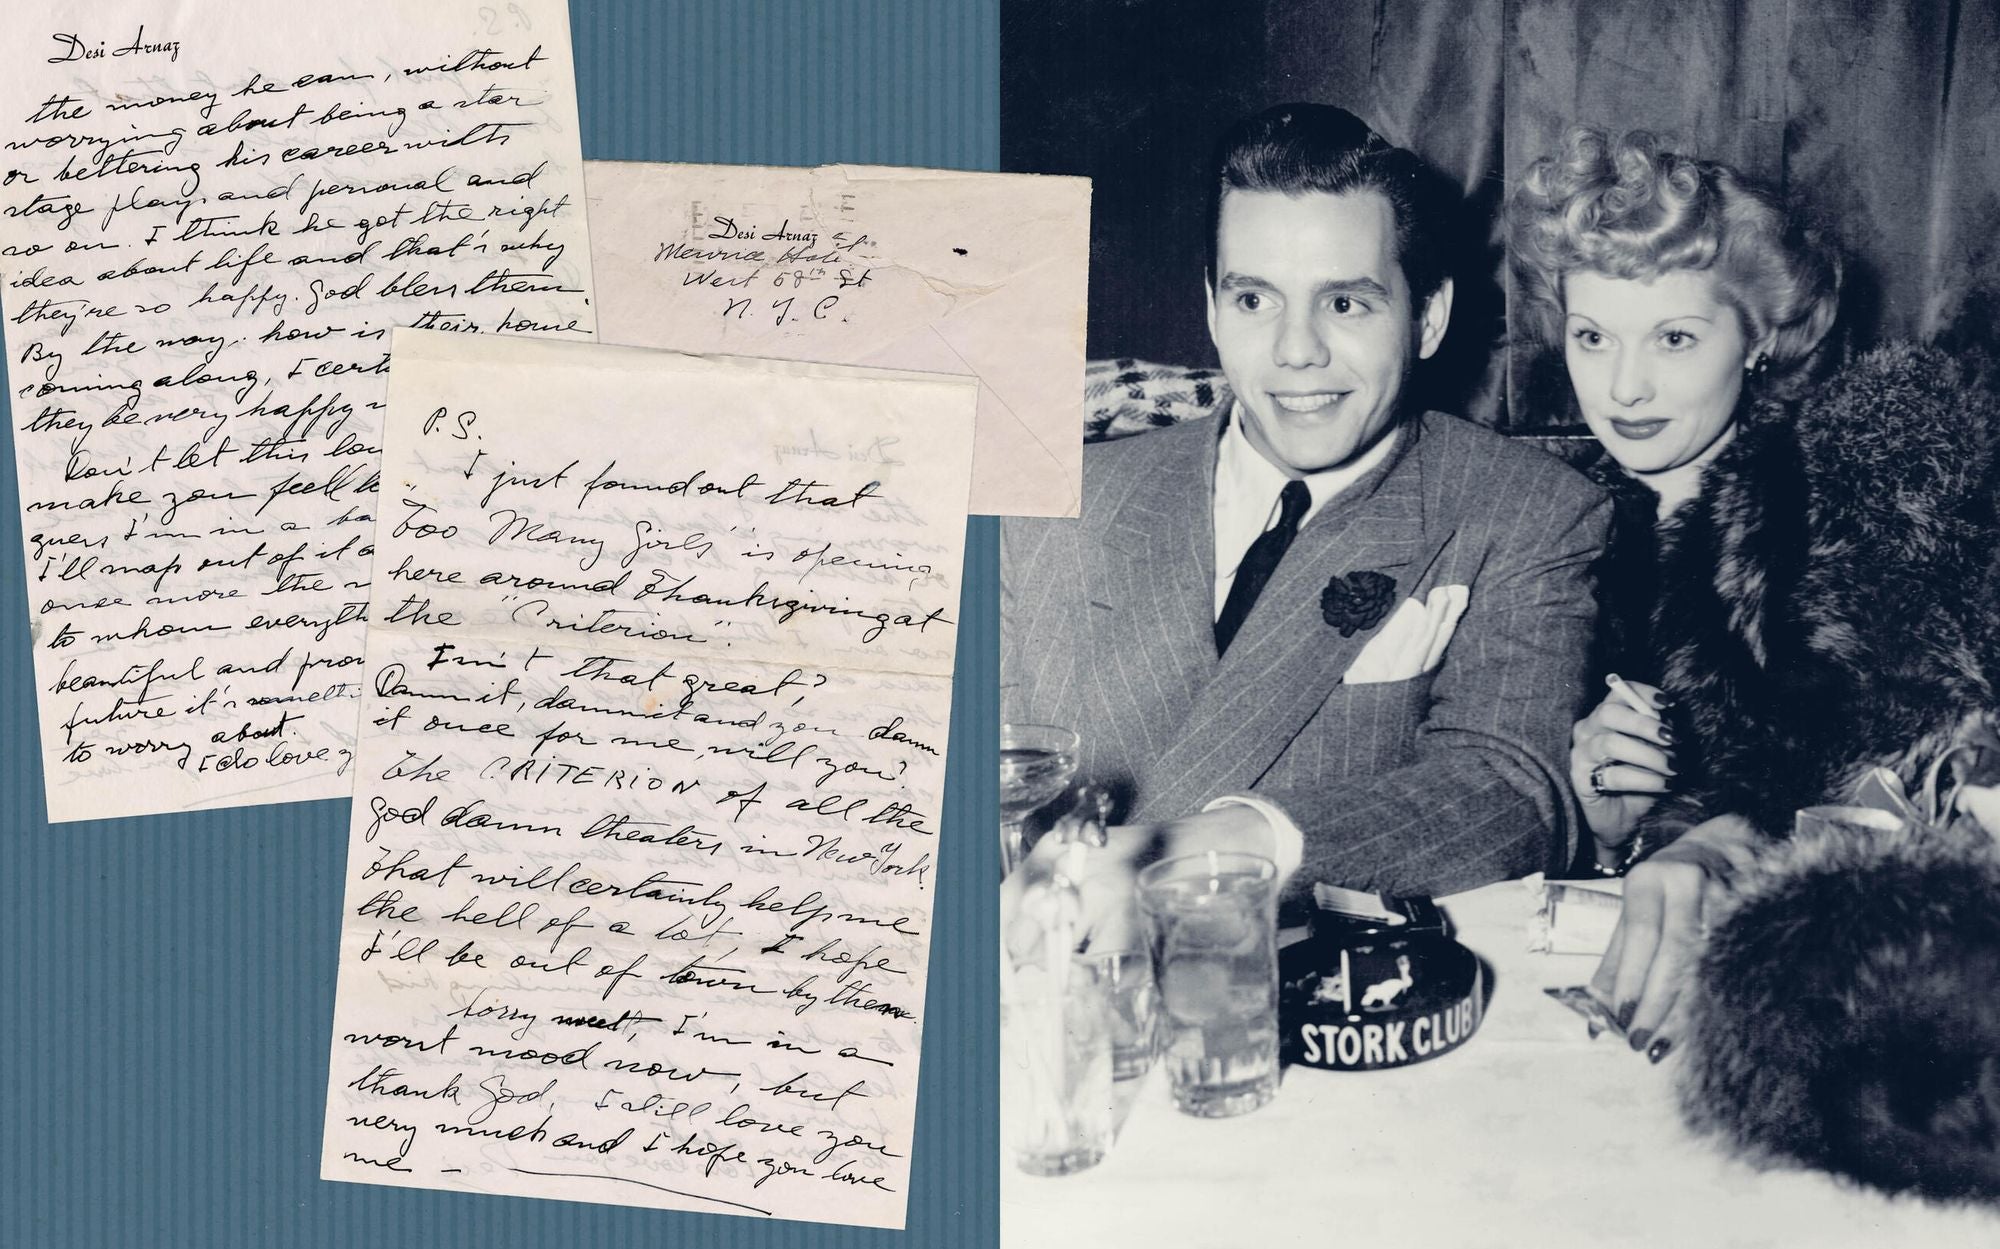 Desi Arnaz
the money he earn, without
worrying about being a star
or bettering his career with
stage plays and personal and
so on. I think he got the right
idea about life and that's why
they're so happy. God bless them.
By the way, how is their home
coming along, I cert
they be very happy
Don't let this
make you feel
guess I'm in a ba
I'll snap out of it
once more the
to whom everyth
beautiful and
future it's somethi
to worry about.
I do love y
Desi Arnaz
West 58th St
N. Y. C.
P. S.
I just found out that
"Too Many Girls" is opening
here around Thanksgiving at
the "Criterion".
Isn't that great?
Damn it, damn it and you damn
it once for me, will you?
The CRITERION of all the
God damn theaters in New York.
That will certainly help me
the hell of a lot, I hope
I'll be out of town by then.
Sorry sweet, I'm in a
worst mood now, but
thank God, I still love you
very much and I hope you love
me –
STORK CLUB